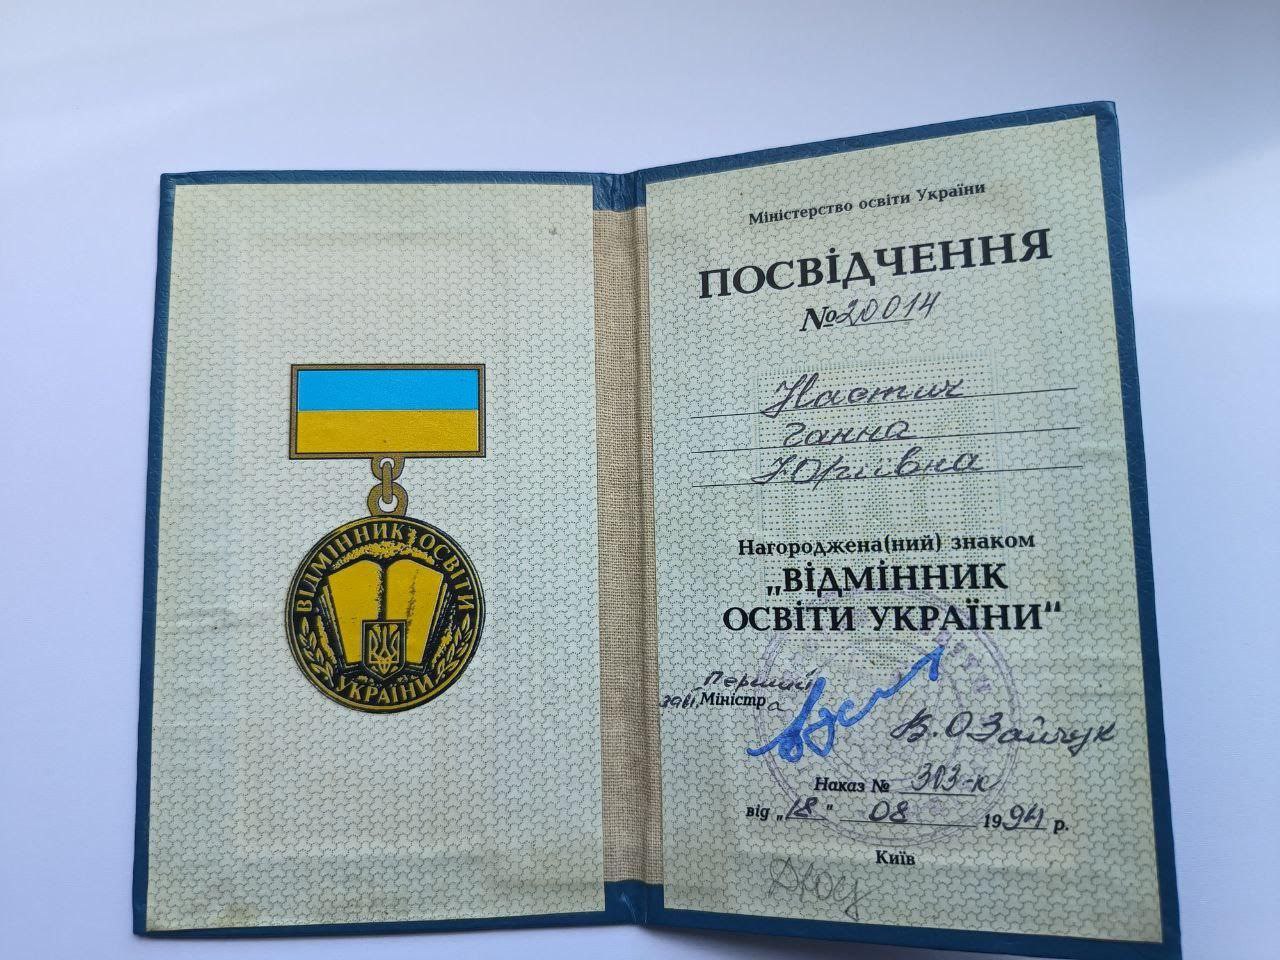 ВІДМІННИК ОСВІТИ
УКРАЇНИ
Міністерство освіти України
ПОСВІДЧЕННЯ
№ 20014
Настич
Ганна
Юріївна
Нагороджена(ний) знаком
„ВІДМІННИК
ОСВІТИ УКРАЇНИ"
Перший
заст. Міністра
В.О Зайчук
Наказ № 313-к
від „18" 08 1994 р.
Київ